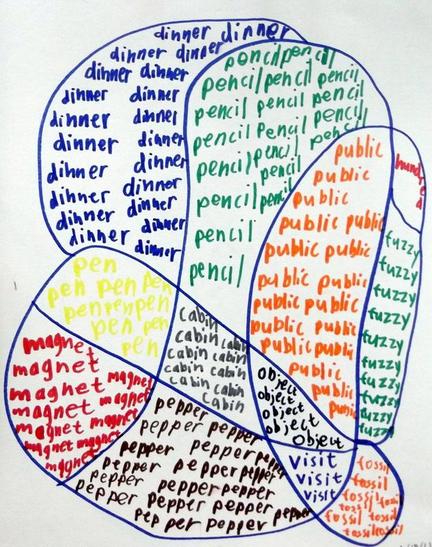 dinner dinner
dinner dinner
dinner dinner
dinner dinner
dinner dinner
dinner dinner
dinner dinner
dinner dinner
dinner dinner
dinner dinner
dinner dinner
pencil pencil
pencil pencil pencil
pencil pencil pencil
pencil pencil pencil
pencil pencil pencil
pencil pencil
pencil
pencil
public
public
public
public public
public public
public public
public public
public public
public public
public
public
public
hundred
fuzzy
fuzzy
fuzzy
fuzzy
fuzzy
fuzzy
fuzzy
fuzzy
fuzzy
fuzzy
pen
pen pen pen
pen pen pen
pen pen
pen
cabin
cabin cabin
cabin cabin
cabin cabin
cabin cabin
cabin
magnet
magnet
magnet magnet
magnet magnet
magnet magnet
magnet magnet
magnet
object
object
object
object
object
pepper
pepper pepper
pepper pepper pepper
pepper pepper pepper
pepper pepper pepper
pepper pepper pepper
pepper pepper pepper
visit
visit
visit
fossil
fossil
fossil fossil
fossil fossil
fossil fossil
fossil fossil